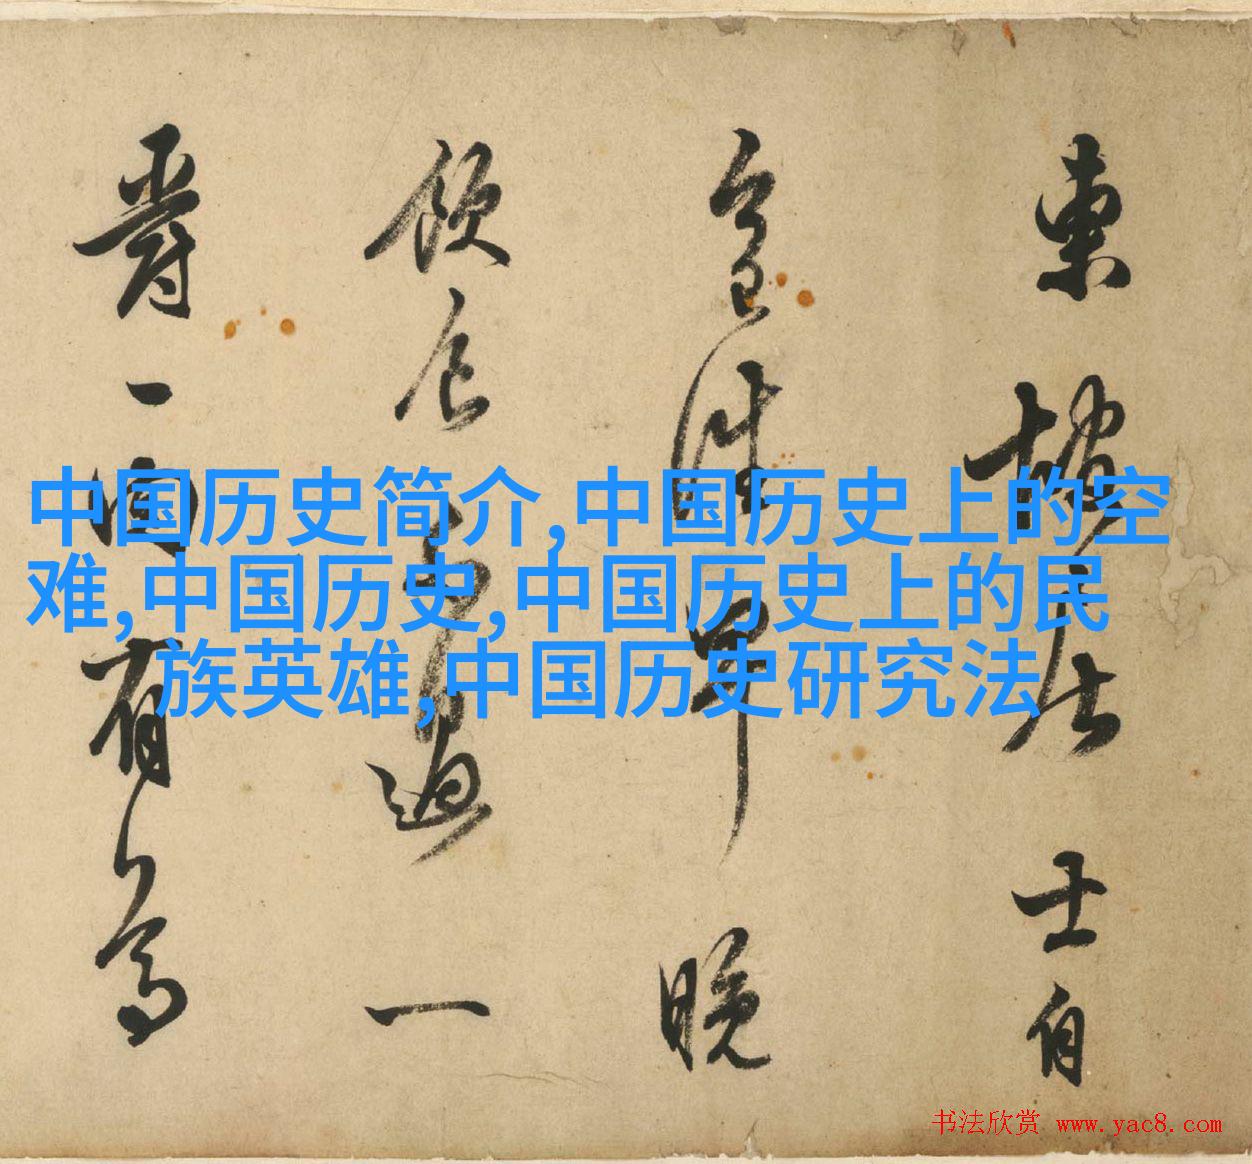 東坡居士自
今日往早晚
飲食不過一
爵一肉有
中国历史简介,中国历史上的空
难,中国历史,中国历史上的民
族英雄,中国历史研究法
书法欣赏 www.yac8.com